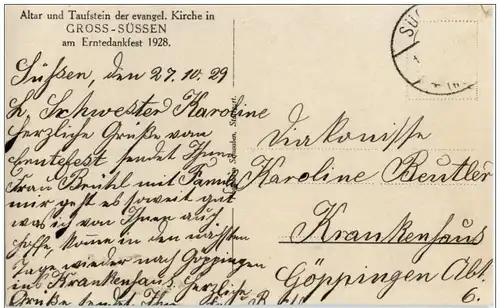 Altar und Taufstein der evangel. Kirche in
GROSS-SÜSSEN
am Erntedankfest 1928.
Süßen, den 27.10.29
L. Schwester Karoline
Herzliche Grüße vom
Erntefest sendet Ihnen
Frau Brühel mit Famil
mir geht es soweit gut
was ich von Ihnen auch
hoffe, komme in den nächsten
Tage wieder nach Göppingen
ins Krankenhaus, herzliche
Grüße sendet Ihn
SÜ
Diakonisse
Karoline Beutler
Krankenhaus
Göppingen Abt
6.